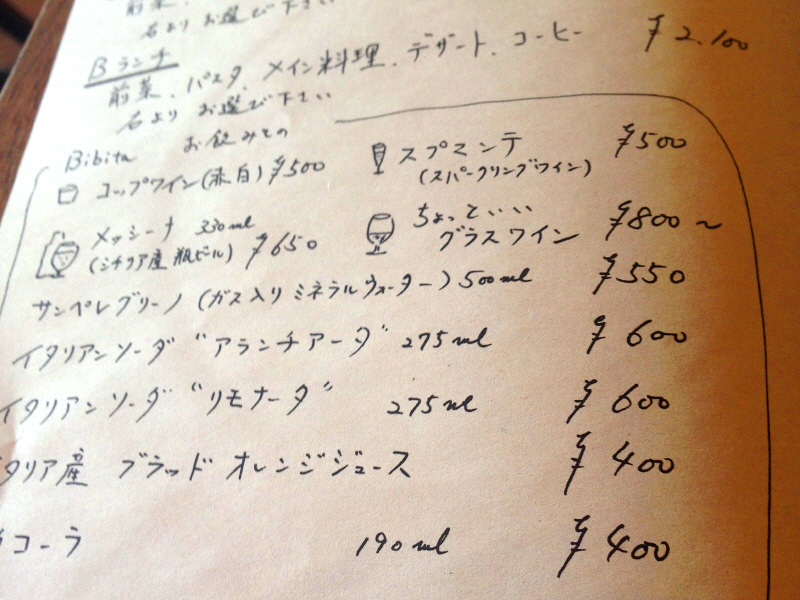 前菜、
各より お選び下さい
Bランチ
前菜、パスタ、メイン料理、デザート、コーヒー ¥2.100
各より お選び下さい
Bibita お飲みもの
コップワイン(赤白) ¥500
スプマンテ ¥500
(スパークリングワイン)
メッシーナ 330ml
(シチリア産 瓶ビール) ¥650
ちょっといい
グラスワイン ¥800〜
サンペレグリーノ (ガス入りミネラルウォーター) 500ml ¥550
イタリアンソーダ "アランチアータ" 275ml ¥600
イタリアンソーダ "リモナータ" 275ml ¥600
タリア産 ブラッドオレンジジュース ¥400
コーラ 190ml ¥400